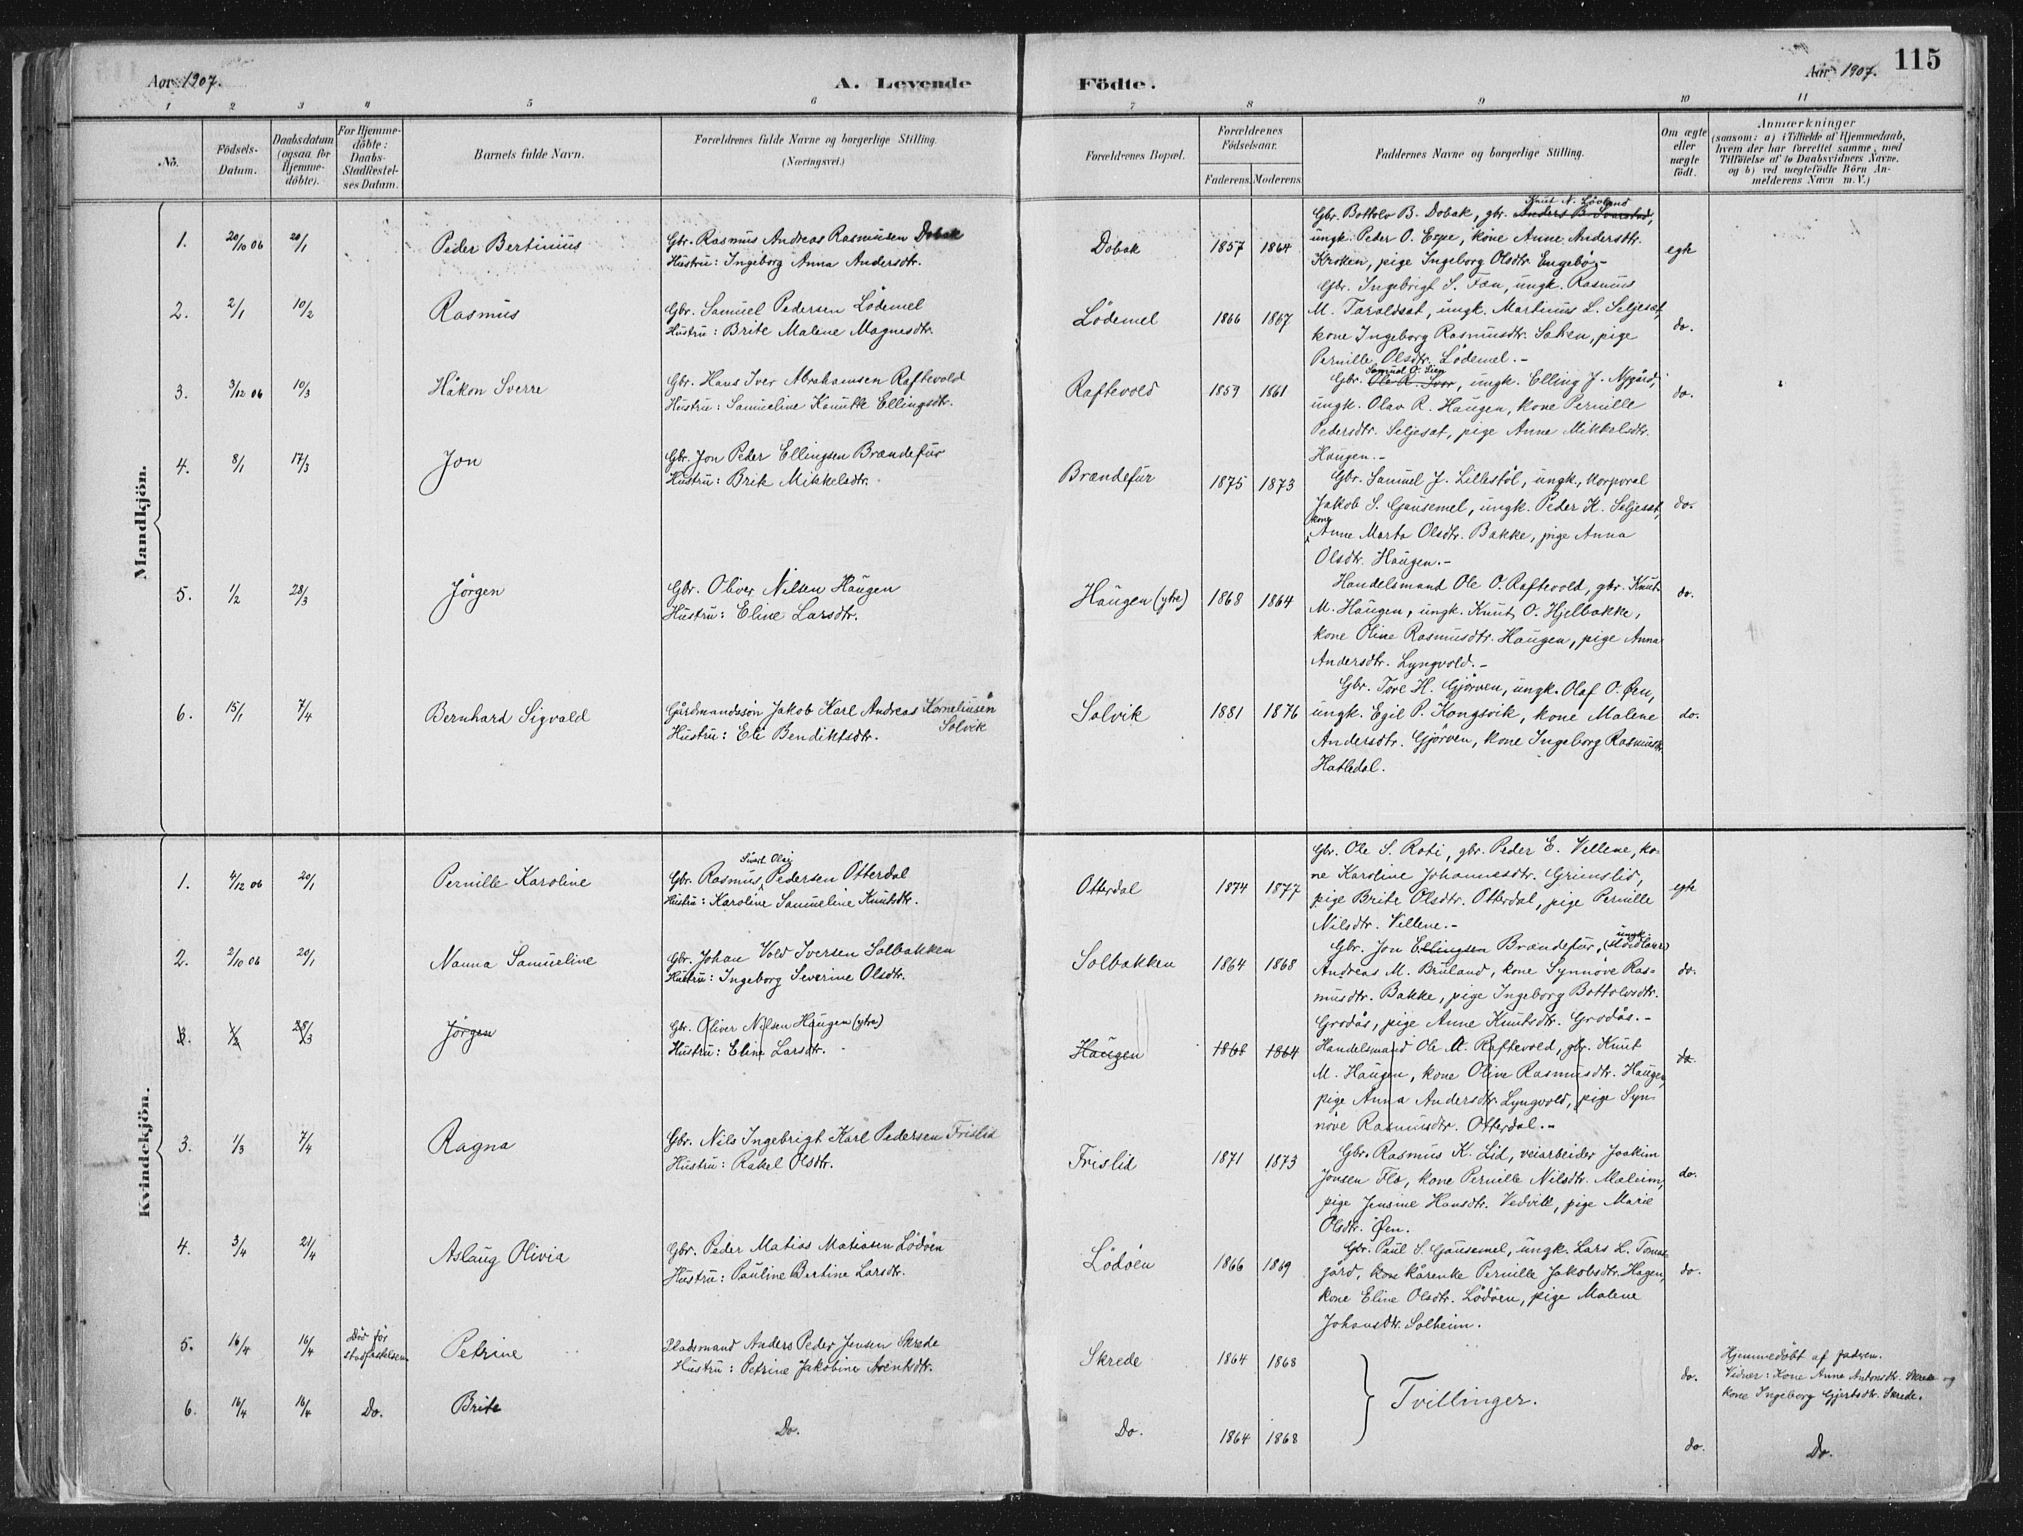 115
Aar 1907.
A. Levende
Födte.
Aar 1907.
1 2 3 4 5 6 7 8 9 10 11
No.
Födsels-Datum.
Daabsdatum (ogsaa for Hjemme-döbte).
For Hjemme-döbte: Daabs-Stadfæstel-ses Datum.
Barnets fulde Navn.
Forældrenes fulde Navne og borgerlige Stilling.
(Næringsvei.)
Forældrenes Bopæl.
Forældrenes Födselsaar.
Faderens. Moderens.
Faddernes Navne og borgerlige Stilling.
Om ægte eller uægte födt.
Anmærkninger
(saasom: a) i Tilfælde af Hjemmedaab,
hvem der har forrettet samme, med
Tilföielse af to Daabsvidners Navne.
og b) ved uægtefödte Börn An-
melderens Navn m. V.)
Mandkjön.
1. 20/10 06 20/1 Peder Bertinius
Gbr. Rasmus Andreas Rasmusen Dobak
Hustru: Ingeborg Anna Andersdtr.
Dobak 1857 1864
Knut N. Lövland
Gbr. Bottolv B. Dobak, gbr. Anders B. Svarstad,
ungk. Peder O. Espe, kone Anne Andersdtr.
Kroken, pige Ingeborg Olsdtr. Engebö.-
egte
2. 2/1 10/2 Rasmus
Gbr. Samuel Pedersen Lödemel
Hustru: Brite Malene Magnesdtr.
Lödemel 1866 1867
Gbr. Ingebrigt S. Fæn, ungk. Rasmus
M. Taraldsat, ungk. Martinus L. Seljeset,
kone Ingeborg Rasmusdtr. Saken, pige
Pernille Olsdtr. Lödemel.-
do.
3. 3/12 06 10/3 Håkon Sverre
Gbr. Hans Iver Abrahamsen Raftevold
Hustru: Samueline Knutte Ellingsdtr.
Raftevold 1859 1861
Samuel O. Lien
Gbr. Ole R. Svor, ungk. Elling J. Nygård,
ungk. Olav R. Haugen, kone Pernille
Pedersdtr. Seljeset, pige Anne Mikkelsdtr.
Haugen.-
do.
4. 8/1 17/3 Jon
Gbr. Jon Peder Ellingsen Brændefur
Hustru: Brite Mikkelsdtr.
Brændefur 1875 1873
Gbr. Samuel J. Lillestöl, ungk., korporal
Jakob S. Gausemel, ungk. Peder K. Seljeset,
kone
Anne Marta Olsdtr. Bakke, pige Anna
Olsdtr. Haugen.-
do.
5. 1/2 28/3 Jörgen
Gbr. Oliver Nilsen Haugen
Hustru: Eline Larsdtr.
Haugen (ytre) 1868 1864
Handelsmand Ole O. Raftevold, gbr. Knut
M. Haugen, ungk. Knut O. Hjelbakke,
kone Oline Rasmusdtr. Haugen, pige Anna
Andersdtr. Lyngvold.-
do.
6. 15/1 7/4 Bernhard Sigvald
Gårdmandssön Jakob Karl Andreas Korneliusen
Solvik
Hustru: Eli Bendiktsdtr.
Solvik 1881 1876
Gbr. Tore H. Gjörven, ungk. Olaf O. Øen,
ungk. Egil P. Kongsvik, kone Malene
Andersdtr. Gjörven, kone Ingeborg Rasmusdtr.
Hatledal.
do.
Kvindekjön.
1. 4/12 06 20/1 Pernille Karoline
Sivert Olai
Gbr. Rasmus Pedersen Otterdal
Hustru: Karoline Samueline Knutsdtr.
Otterdal 1874 1877
Gbr. Ole S. Roti, gbr. Peder E. Vellene, ko-
ne Karoline Johannesdtr. Grimslid,
pige Brite Olsdtr. Otterdal, pige Pernille
Nilsdtr. Vellene.-
egte
2. 2/10 06 20/1 Nanna Samueline
Gbr. Johan Vold Iversen Solbakken
Hustru: Ingeborg Severine Olsdtr.
Solbakken 1864 1868
ungk.
Gbr. Jon Ellingsen Brændefur,
Andreas M. Bruland, kone Synnöve Ras-
musdtr. Bakke, pige Ingeborg Bottolvsdtr.
Grodås, pige Anne Knutsdtr. Grodås.-
do.
3. 1/2 28/3 Jörgen
Gbr. Oliver Nilsen Haugen (ytre)
Hustru: Eline Larsdtr.
Haugen 1868 1864
Handelsmand Ole M. Raftevold, gbr. Knut
M. Haugen, kone Oline Rasmusdtr. Haugen,
pige Anna Andersdtr. Lyngvold, pige Syn-
növe Rasmusdtr. Otterdal.-
do.
3. 1/3 7/4 Ragna
Gbr. Nils Ingebrigt Karl Pedersen Frislid
Hustru: Rakel Olsdtr.
Frislid 1871 1873
Gbr. Rasmus K. Lid, veiarbeider Joakim
Jonsen Flo, kone Pernille Nilsdtr. Maleim,
pige Jensine Hansdtr. Vedvik, pige Marie
Olsdtr. Øen.
do.
4. 3/4 21/4 Aslaug Olivia
Gbr. Peder Matias Matiasen Lödöen
Hustru: Pauline Bertine Larsdtr.
Lödöen 1866 1869
Gbr. Paul S. Gausemel, ungk. Lars L. Tomas-
gård, kone Kårenke Pernille Jakobsdtr. Hagen,
kone Eline Olsdtr. Lödöen, pige Malene
Johansdtr. Solheim.
do.
5. 16/4 16/4 Död för stadfæstelsen Petrine
Pladsmand Anders Peder Jensen Skrede
Hustru: Petrine Jakobine Arentsdtr.
Skrede 1864 1868
Tvillinger.
do.
Hjemmedöbt af faderen.
Vidner: Kone Anne Antonsdtr. Skrede og
kone Ingeborg Gjertsdtr. Skrede.
6. 16/4 16/4 Do. Brite
Do.
Do. 1864 1868
do.
Do.